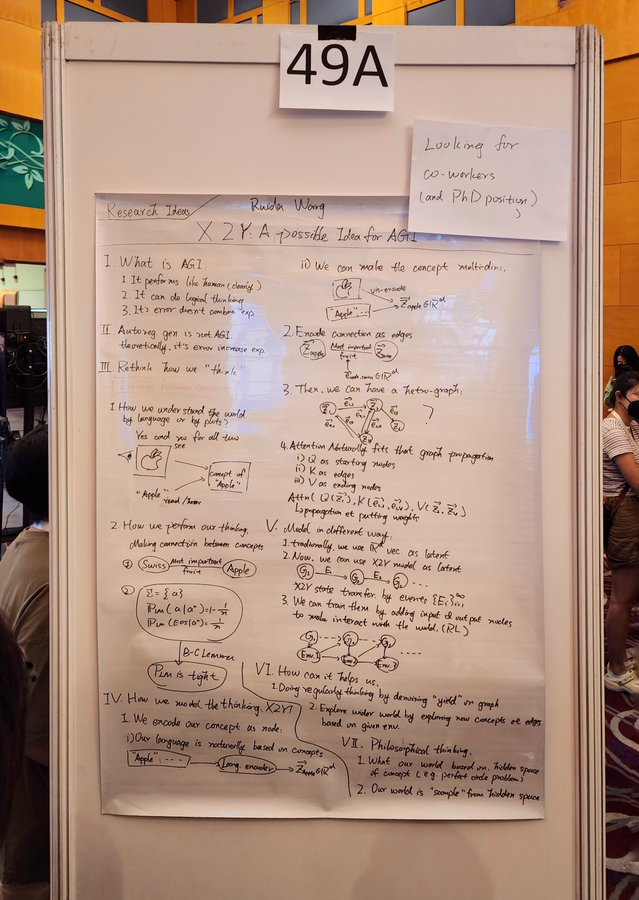 49A
Looking for
co-workers
(and PhD position)
Research Ideas
Ruida Wang
X2Y. A possible Idea for AGI
I. What is AGI:
1. It performs like human (clearly)
2. It can do logical thinking
3. It's error doesn't combine exp.
II Autoreg. gen. is not AGI.
theoretically, it's error increase exp.
III. Rethink how we "think"
1. How we understand the world.
by language or by plots?
Yes and no for all two
see
concept of
"Apple"
"Apple" read/hear
2. How we perform our thinking,
Making connection between concepts
① Swiss Most important fruit Apple
② Σ = {a}
B-C Lemma
is tight
IV. How we model the thinking, X2Y?
1. We encode our concept as node:
i) Our language is naturally based on concepts
"Apple": ....
Lang. encoder
ii) We can make the concept multi-dim.
vis-encode
"Apple": ...
2. Encode connection as edges
Most important
fruit
3. Then, we can have a hetro-graph:
?
4. Attention Naturally fits that graph propagation
i) Q as starting nodes
ii) K as edges
iii) V as ending nodes
propagation et putting weights
V. Model in different way:
1. tradionally, we use ℝᵈ vec. as latent
2. Now, we can use X2Y model as latent
G₁ E₁ G₂ E₂ G₃ ...
X2Y state transfer by events
3. We can train them by adding input & output nodes
to make interact with the world. (RL)
G₁ G₂ G₃ ...
Env.1 Env.2 Env.3
VI. How can it helps us.
1. Doing regularly thinking by denoising "yield" on graph
2. Explore wider world by exploring new concepts et edges
based on given env.
VII. Philosorphical thinking.
1. What our world based on. hidden space
of concept (e.g. perfect circle problem)
2. Our world is "sample" from hidden space